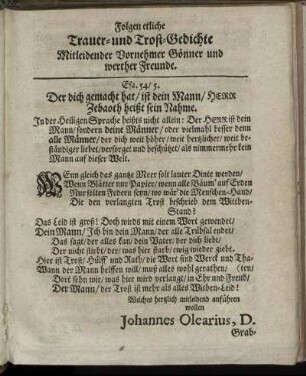 Folgen etliche
Trauer- und Trost-Gedichte
Mitleidender Vornehmer Gönner und
werther Freunde.
Esa. 54/ 5.
Der dich gemacht hat/ ist dein Mann/ HERR
Zebaoth heißt sein Nahme.
In der Heiligen Sprache heißts nicht allein: Der HErr ist dein
Mann/ sondern deine Männer/ oder vielmahl besser denn
alle Männer/ der dich weit höher/ weit hertzlicher/ weit be-
ständiger liebet/ versorget und beschützet/ als nimmermehr kein
Mann auf dieser Welt.
WEnn gleich das gantze Meer solt lauter Dinte werden/
Wenn Blätter nur Papier/ wenn alle Bäum' auf Erden
Nur solten Federn seyn/ wo wär' die Menschen-Hand/
Die den verlangten Trost beschrieb dem Witben-
Stand?
Das Leid ist groß! Doch wirds mit einem Wort gewendet/
Dein Mann/ Ich bin dein Mann/ der alle Trübsal endet/
Das sagt/ der alles kan/ dein Vater/ der dich liebt/
Der nicht stirbt/ der/ was hier starb/ ewig wieder giebt.
Hier ist Trost/ Hülff und Rath/ die Wort sind Werck und Tha-
Wann der Mann helffen will/ muß alles wohl gerathen/ (ten/
Dort sehn wir/ was hier wird verlangt/ in Ehr und Freud/
Der Mann/ der Trost ist mehr als alles Witben-Leid!
Welches hertzlich mitleidend anführen
wollen
Johannes Olearius, D.
Grab-